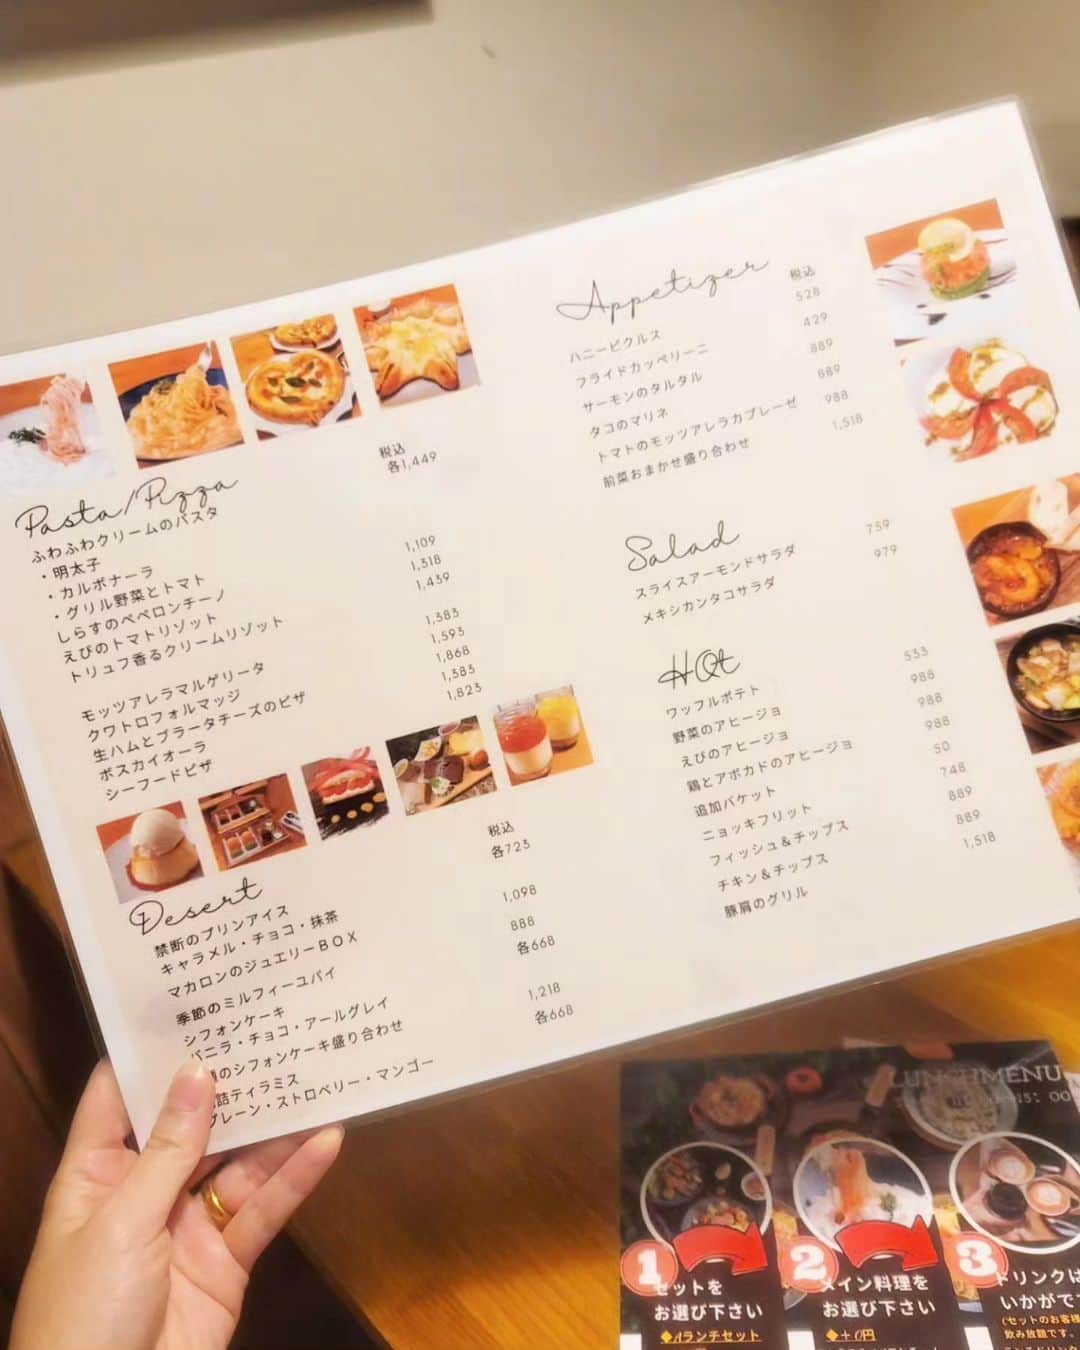 Pasta/Pizza
税込
ふわふわクリームのパスタ
各1,449
・明太子
・カルボナーラ
・グリル野菜とトマト
しらすのペペロンチーノ
1,109
えびのトマトリゾット
1,318
トリュフ香るクリームリゾット
1,439
モッツアレラマルゲリータ
1,383
クワトロフォルマッジ
1,593
生ハムとブラータチーズのピザ
1,868
ボスカイオーラ
1,383
シーフードピザ
1,823
Desert
税込
禁断のプリンアイス
各723
キャラメル・チョコ・抹茶
マカロンのジュエリーBOX
1,098
季節のミルフィーユパイ
888
シフォンケーキ
各668
バニラ・チョコ・アールグレイ
のシフォンケーキ盛り合わせ
1,218
詰ティラミス
各668
プレーン・ストロベリー・マンゴー
Appetizer
税込
ハニーピクルス
528
フライドカッペリーニ
429
サーモンのタルタル
889
タコのマリネ
889
トマトのモッツアレラカプレーゼ
988
前菜おまかせ盛り合わせ
1,518
Salad
スライスアーモンドサラダ
759
メキシカンタコサラダ
979
HOt
ワッフルポテト
533
野菜のアヒージョ
988
えびのアヒージョ
988
鶏とアボカドのアヒージョ
988
追加バケット
50
ニョッキフリット
748
フィッシュ＆チップス
889
チキン＆チップス
889
豚肩のグリル
1,518
LUNCHMENU
15:00
1
セットを
お選び下さい
◆Aランチセット
2
メイン料理を
お選び下さい
◆+0円
3
ドリンクは
いかがで
(セットのお客様
飲み放題です。